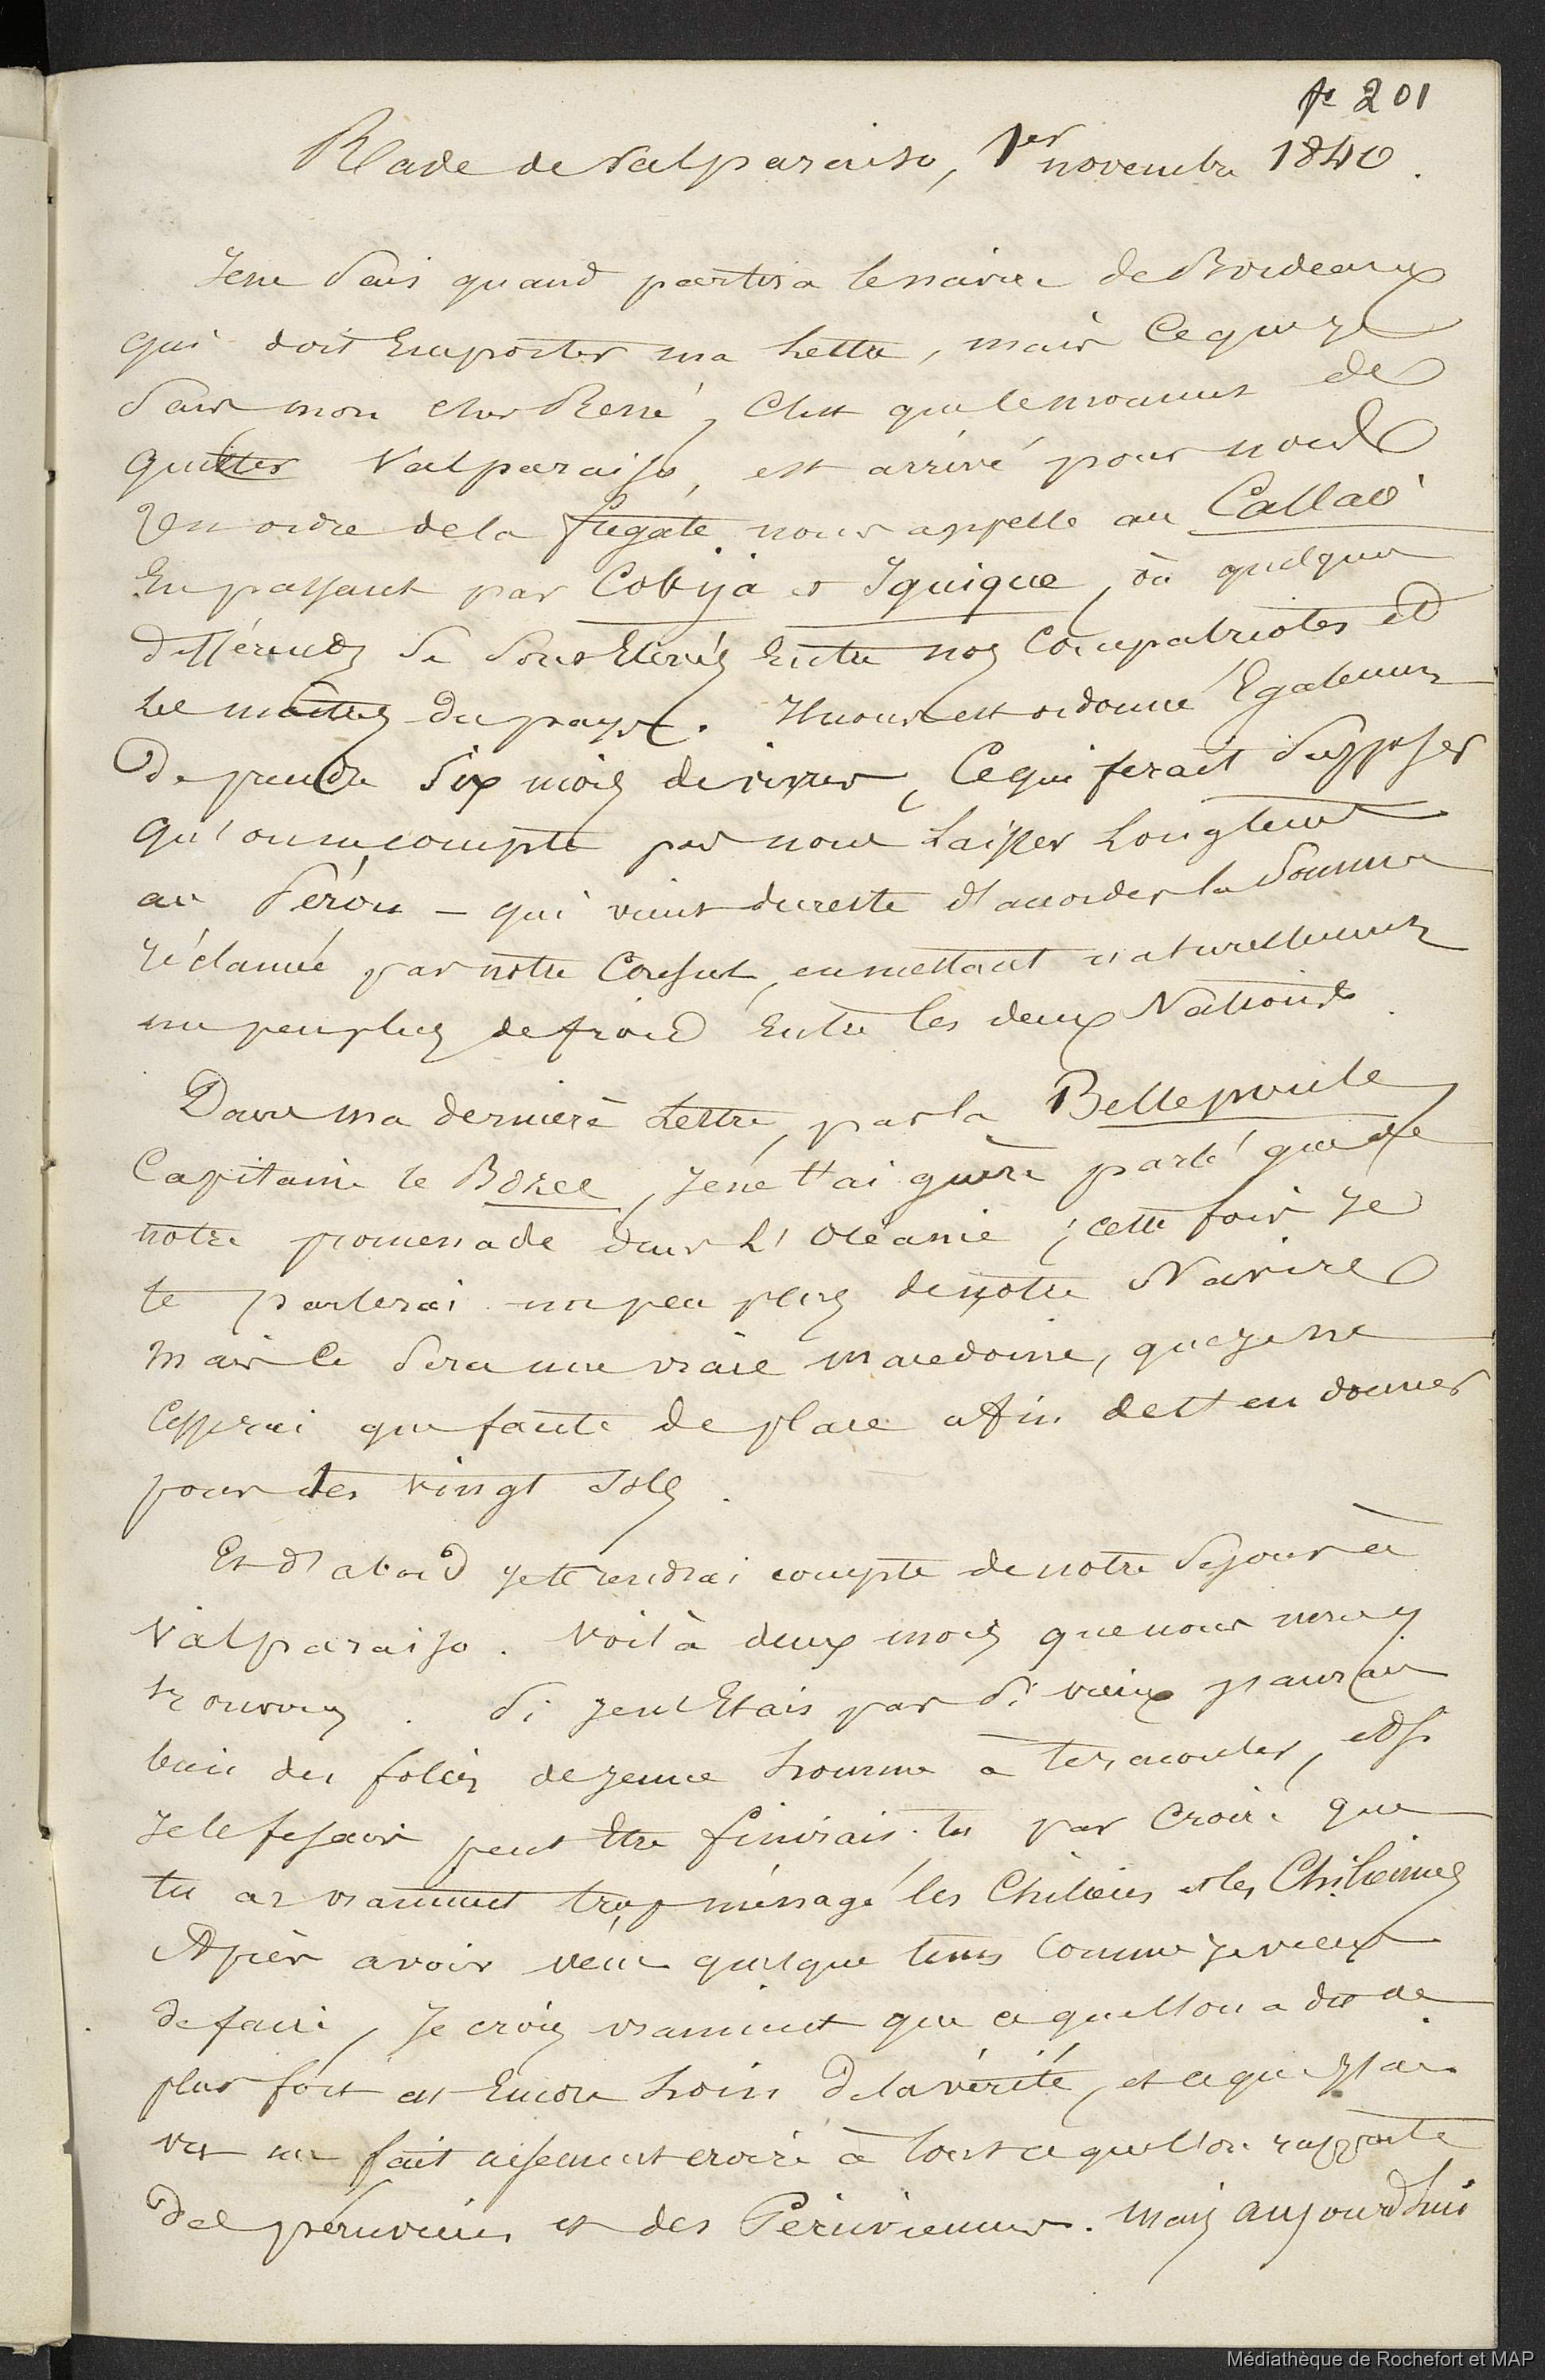 fe 201
Rade de Valparaiso, 1er novembre 1840.
Je ne sais quand partira le navire de Bordeaux
qui doit Emporter ma Lettre, mais Ce que je
sais mon cher René, C'est que le moment de
quitter Valparaiso, est arrivé pour nous
Un ordre de la frégate nous appelle au Callao
En passant par Cobija et Iquique, où quelques
différends se sont Elevés Entre nos Compatriotes et
Les maîtres du pays. Il nous est ordonné Egalement
De prendre Six mois de vivres, Ce qui ferait supposer
qu'on ne compte pas nous Laisser Longtems
au Pérou – qui vient du reste d'accorder la Somme
réclamée par notre Consul, en mettant naturellement
un peu plus de froid Entre les deux Nations.
Dans ma dernière Lettre, par la Bellepoule
Capitaine le Boree, je ne t'ai guère parlé que de
notre promenade dans L'Océanie ; cette fois je
te parlerai un peu plus de notre Navire
Mais Ce sera une vraie macédoine, que je ne
Cesserai que faute de place afin de t'en donner
pour tes vingt sols.
Et d'abord je te rendrai compte de notre Sejour à
Valparaiso. Voilà deux mois que nous nous y
trouvons. Si je n'Etais pas si vieux j'aurais
bien des folies de jeune homme à te raconter, et si
je le fesais peut Etre finirais-tu par Croire que
tu as vraiment trop ménagé les Chiliens et les Chiliennes
Après avoir vécu quelque tems Comme je viens
de faire, je crois vraiment que ce que l'on a dit de
plus fort est Encore Loin De la vérité, et ce que j'ai
vu me fait aisement croire à tout ce que l'on rapporte
Des péruviens et des Péruviennes. Mais aujourd'hui
Médiathèque de Rochefort et MAP